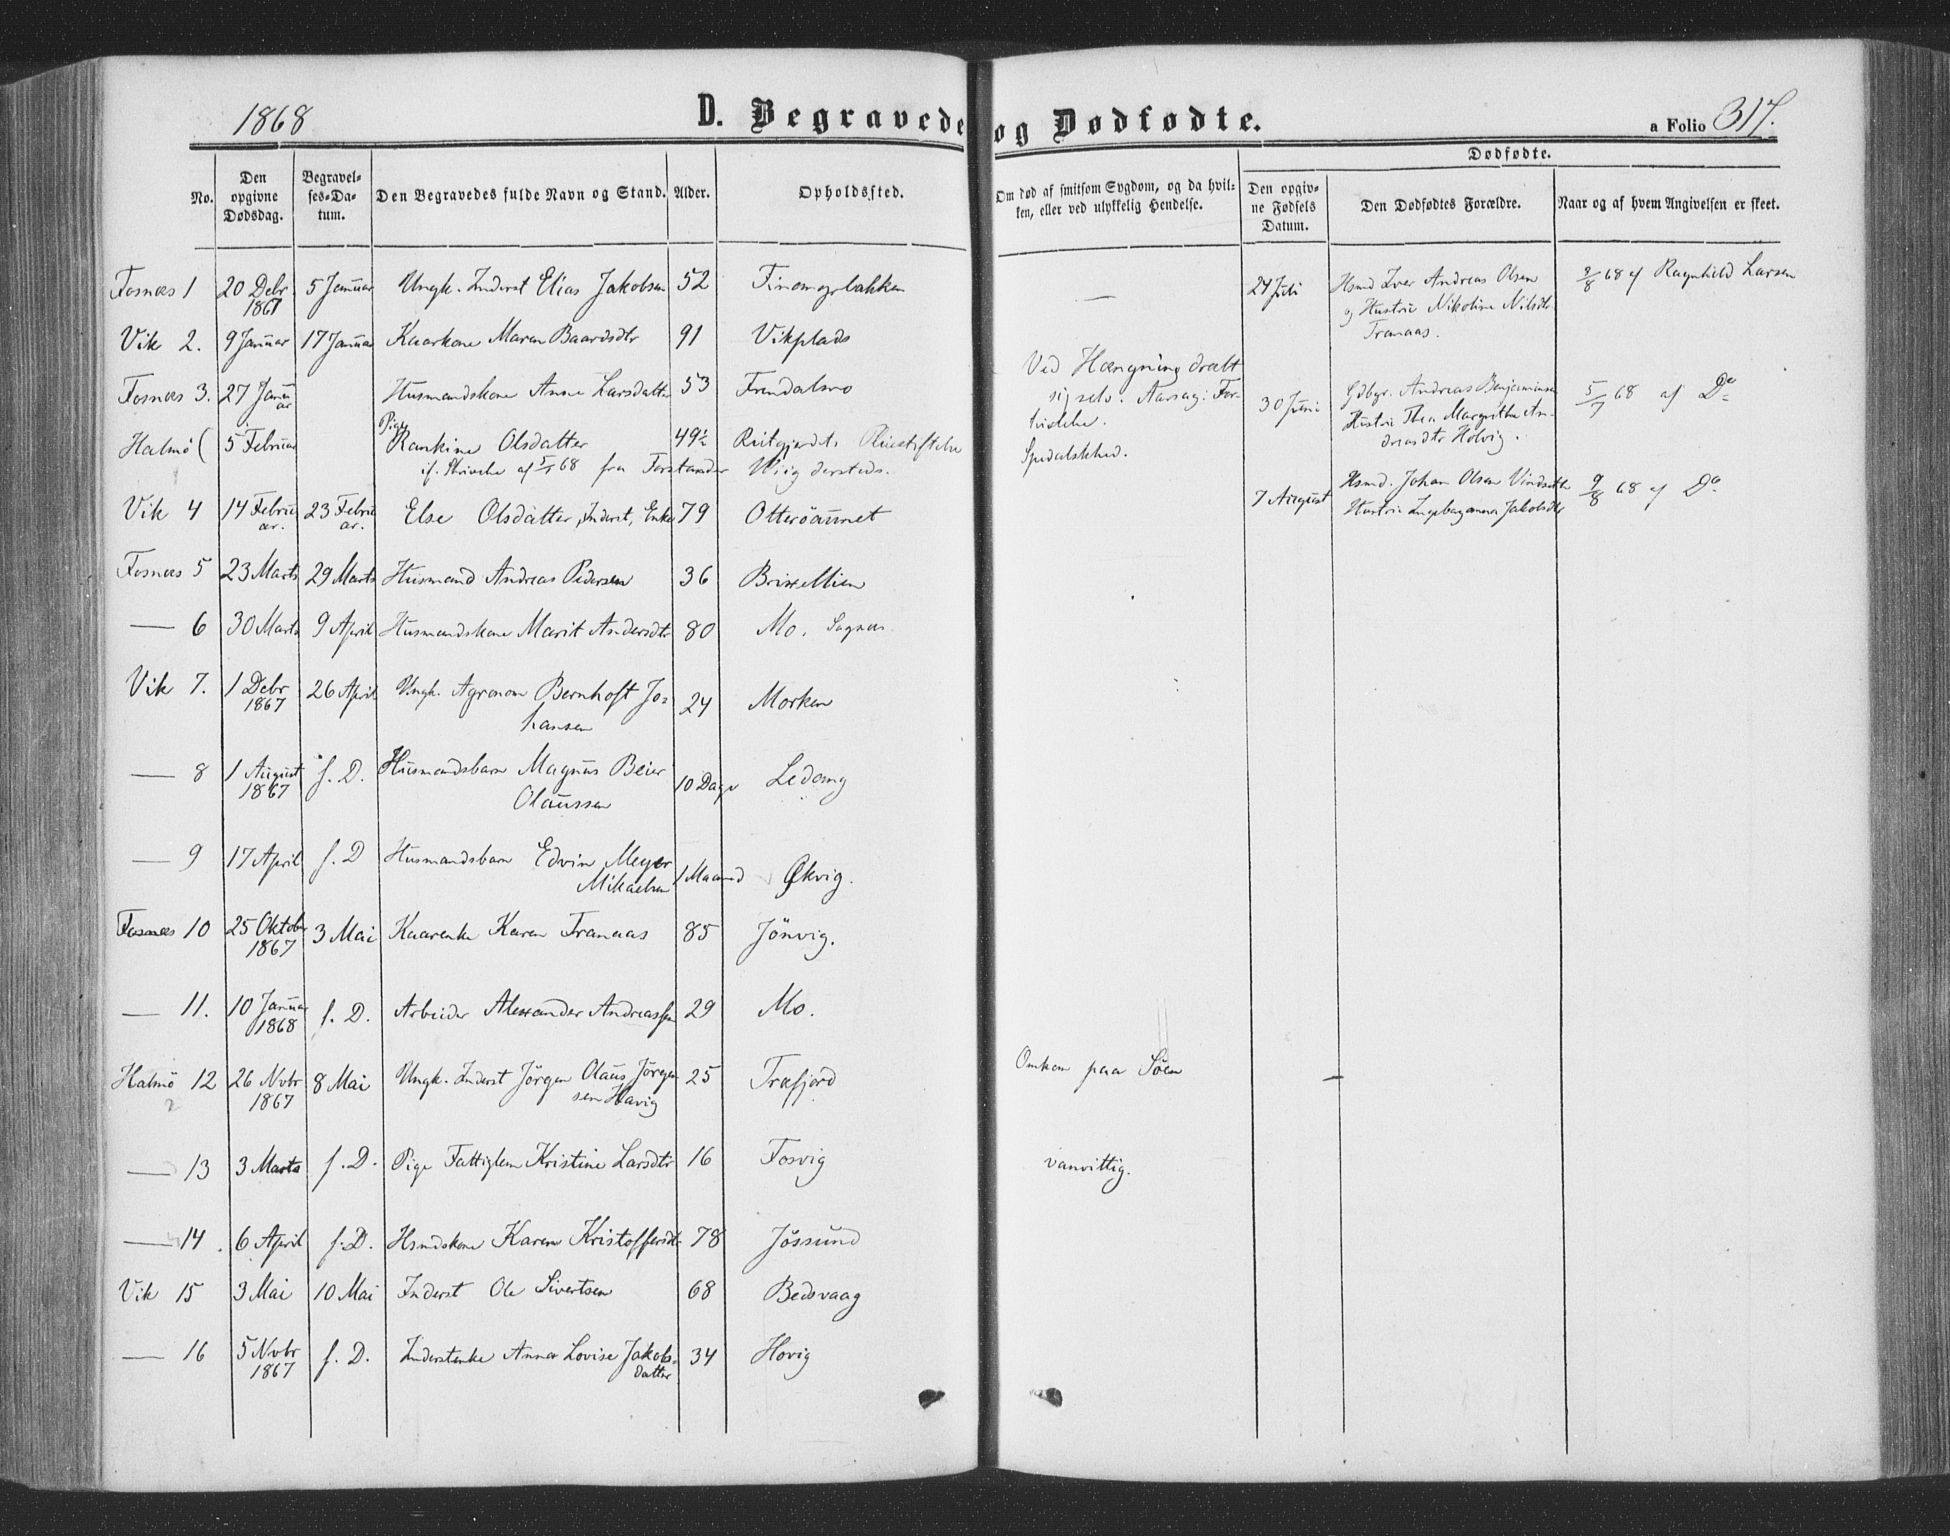 1868
D. Begravede og Dødfødte.
a Folio 317.
No.
Den opgivne Dødsdag.
Begravelses-Datum.
Den Begravedes fulde Navn og Stand.
Alder.
Opholdssted.
Om død af smitsom Sygdom, og da hvilken, eller ved ulykkelig Hendelse.
Dødfødte.
Den opgivne Fødsels Datum.
Den Dødfødtes Forældre.
Naar og af hvem Angivelsen er skeet.
Fosnæs 1 20 Debr 1867 5 Januar Ungk. Inderst Elias Jakobsen 52 —
Vik 2. 9 Januar 17 Januar Kaarkone Maren Baardsdtr 91 Vikplads
Fosnæs 3. 27 Januar Husmandskone Anne Larsdatter 53 Ved Hængning dræbt
sig selv. Aarsag: For-
Halmø ( 5 Februar Pige Rankine Olsdatter 49½ Reitgjerdets Pleiestiftelse Spedalskhed.
if. Skrivelse af 5/1 68 fra Forstander Wiig dersteds.
Vik 4 14 Februar. 23 Februar. Else Olsdatter, Inderst, Enke 79 Otterøaunet
Fosnæs 5 23 Marts 29 Marts Husmand Andreas Pedersen 36
— 6 30 Marts 9 April Husmandskone Marit Andersdtr 80 Mo.
Vik 7. 1 Debr 1867 26 April Ungk. Agronom Bernhoft Jo-
hansen 24 Morken
— 8 1 August 1867 s. D. Husmandsbarn Magnus Beier
Olaussen 10 Dage Ledang
— 9 17 April s. D Husmandsbarn Edvin Meyer
Mikaelsen 1 Maaned Økvig.
Fosnæs 10 25 Oktober 1867 3 Mai Kaarenke Karen Tranaas 85 Jönvig.
— 11. 10 Januar 1868 s. D. Arbeider Alexander Andreassen 29 Mo.
Halmö 12 26 Nvbr 1867 8 Mai Ungk. Inderst Jörgen Olaus Jörgen-
sen Havig 25 Træfjord Omkom paa Söen —
2
— 13 3 Marts s. D. Pige Fattiglem Kristine Larsdtr 16 Fosvig vanvittig.
— 14. 6 April s. D. Hsmdskone Karen Kristoffersdtr 78 Jössund
Vik 15 3 Mai 10 Mai Inderst Ole Sivertsen 68 Bedsvaag
— 16 5 Nvbr 1867 s. D. Inderstenke Anna Lovise Jakobs-
datter 34 Hovig
24 Juli Hsmd Iver Andreas Olsen
og Hustru Nikoline Nilsdtr
Tranaas. 2/8 68 af Ragnhild Larsen
30 Juni Gdbgr. Andreas Benjaminsen
Hustru Thea Margrethe An-
dreasdtr Holvig. 5/7 68 af Do
7 August Hsmd. Johan Olsen
Hustru Jakobsdtr 9/8 68 af Do